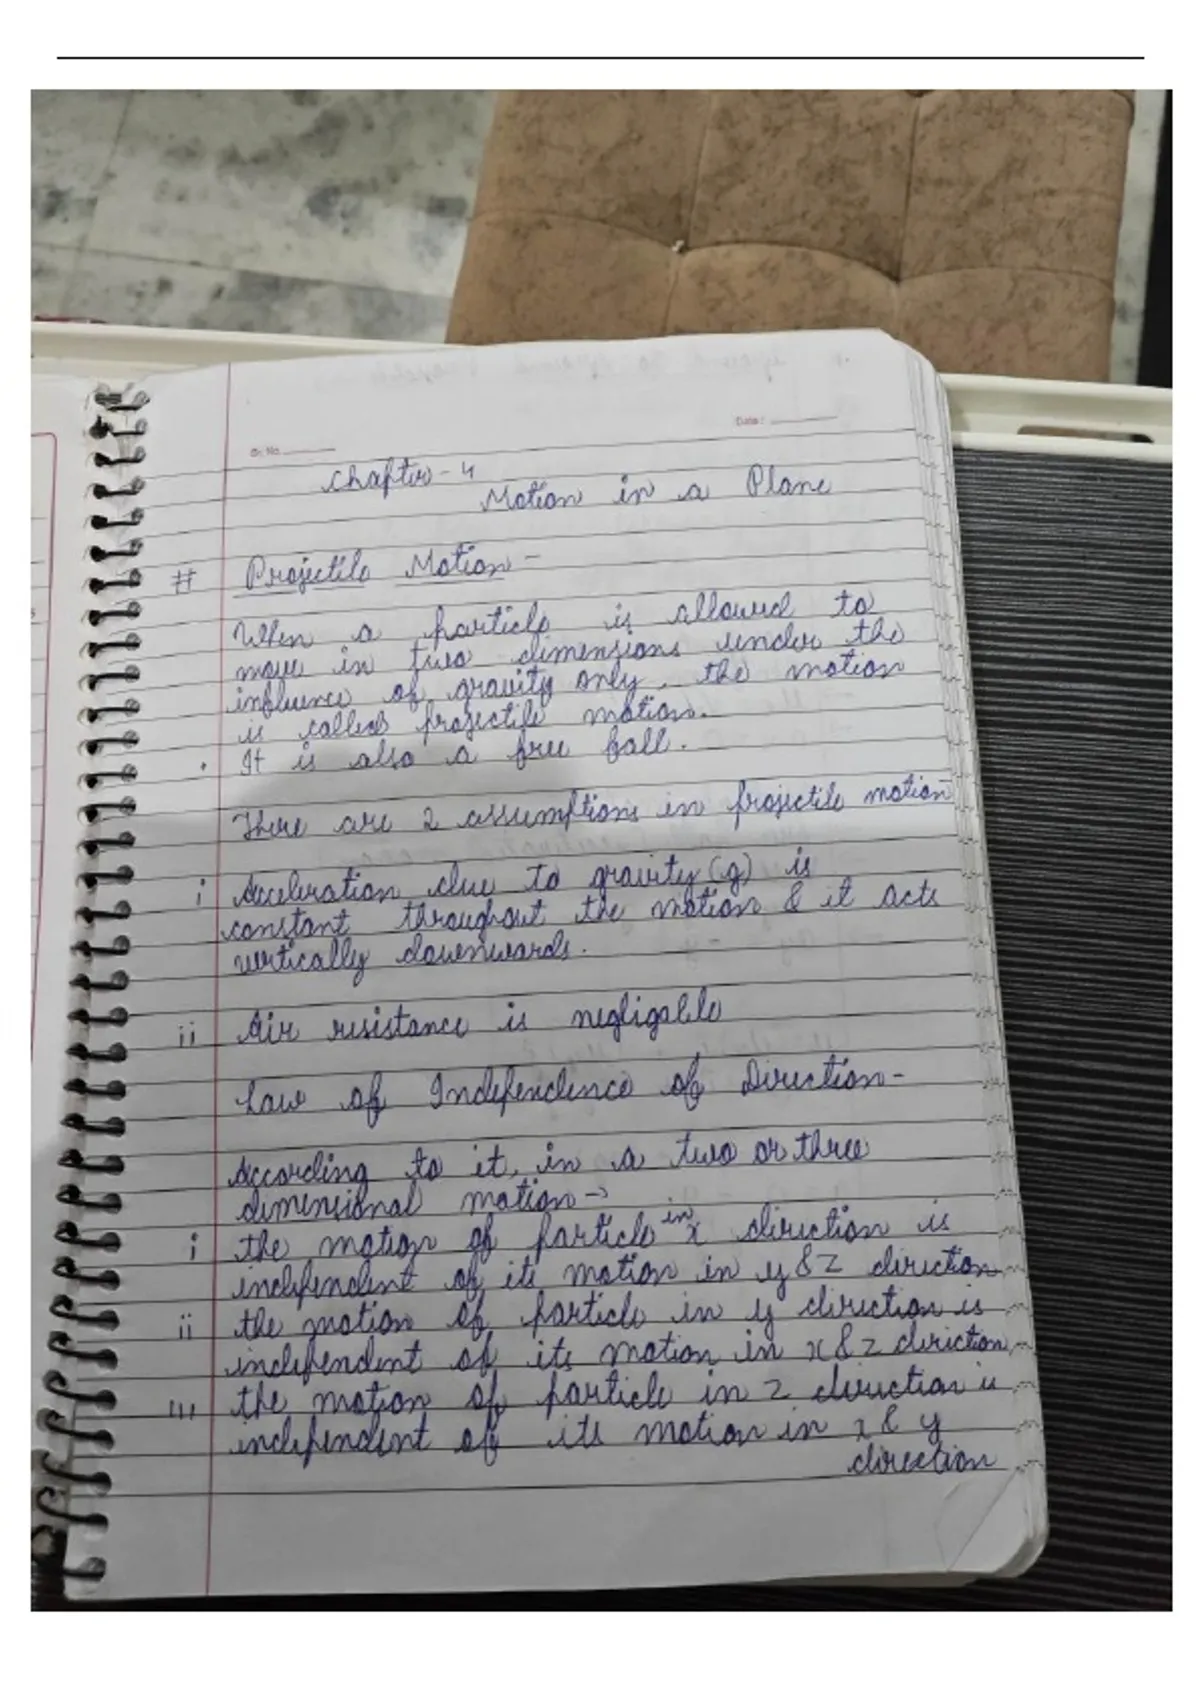 Gr. No.
Date:
Chapter-4
Motion in a Plane
# Projectile Motion-
When a particle is allowed to
move in two dimensions under the
influence of gravity only, the motion
is called projectile motion.
. It is also a free fall.
There are 2 assumptions in projectile motion
i Acceleration due to gravity (g) is
constant throughout the motion & it acts
vertically downwards.
ii Air resistance is negligable
Law of Independence of Direction-
According to it, in a two or three
dimensional motion→
i the motion of particle in x direction is
independent of its motion in y & z direction
ii the motion of particle in y direction is
independent of its motion in x & z direction
iii the motion of particle in z direction is
independent of its motion in x & y
direction